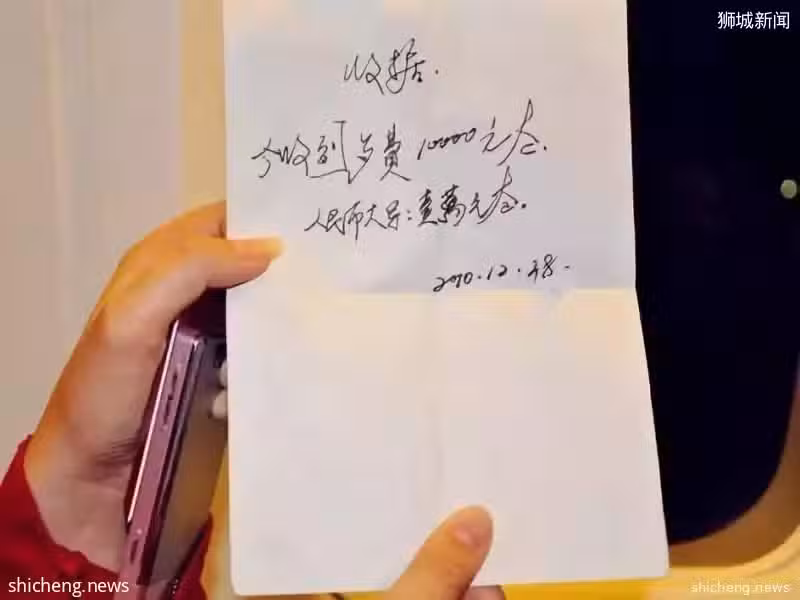 狮城新闻
收据.
今收到 费10000元整.
人民币大写:壹萬元整.
2010.12.28.
shicheng.news
shicheng.news